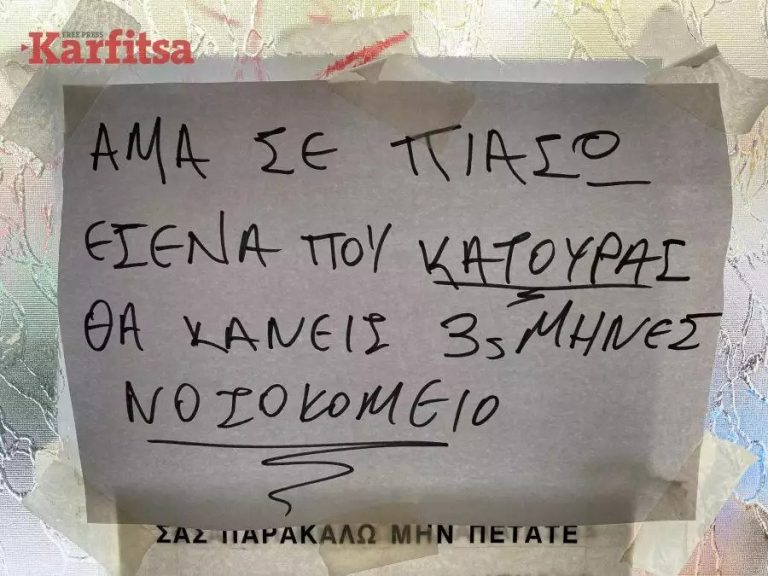 FREE PRESS
Karfitsa
ΑΜΑ ΣΕ ΠΙΑΣΩ
ΕΣΕΝΑ ΠΟΥ ΚΑΤΟΥΡΑΣ
ΘΑ ΚΑΝΕΙΣ 3ς ΜΗΝΕΣ
ΝΟΣΟΚΟΜΕΙΟ
ΣΑΣ ΠΑΡΑΚΑΛΩ ΜΗΝ ΠΕΤΑΤΕ